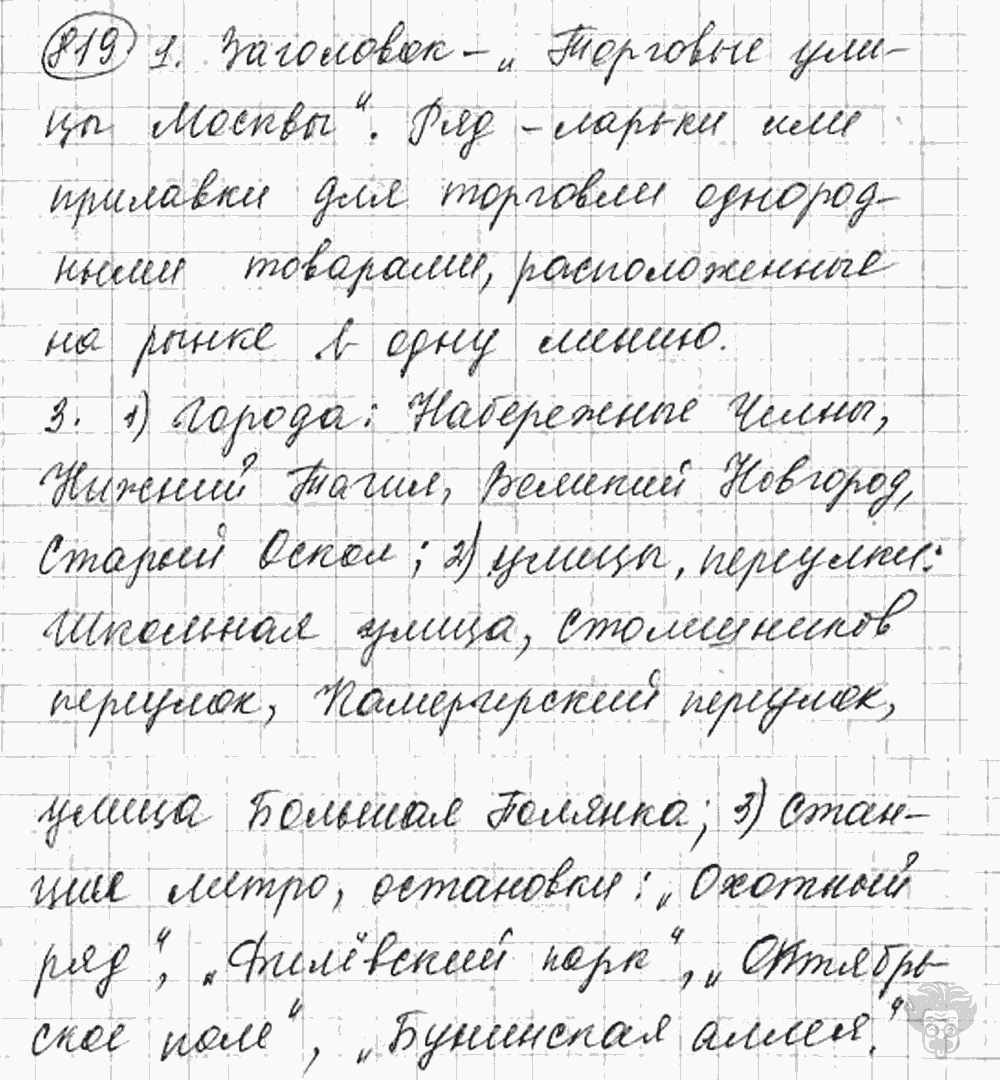 819 1. Заголовок – „Торговые ули-
цы Москвы“. Ряд – ларьки или
прилавки для торговли однород-
ными товарами, расположенные
на рынке в одну линию.
3. 1) Города: Набережные Челны,
Нижний Тагил, Великий Новгород,
Старый Оскол; 2) улицы, переулки:
Школьная улица, Столешников
переулок, Камергерский переулок,
улица Большая Полянка; 3) Стан-
ции метро, остановки: „Охотный
ряд“, „Филёвский парк“, „Октябрь-
ское поле“, „Бунинская аллея.“